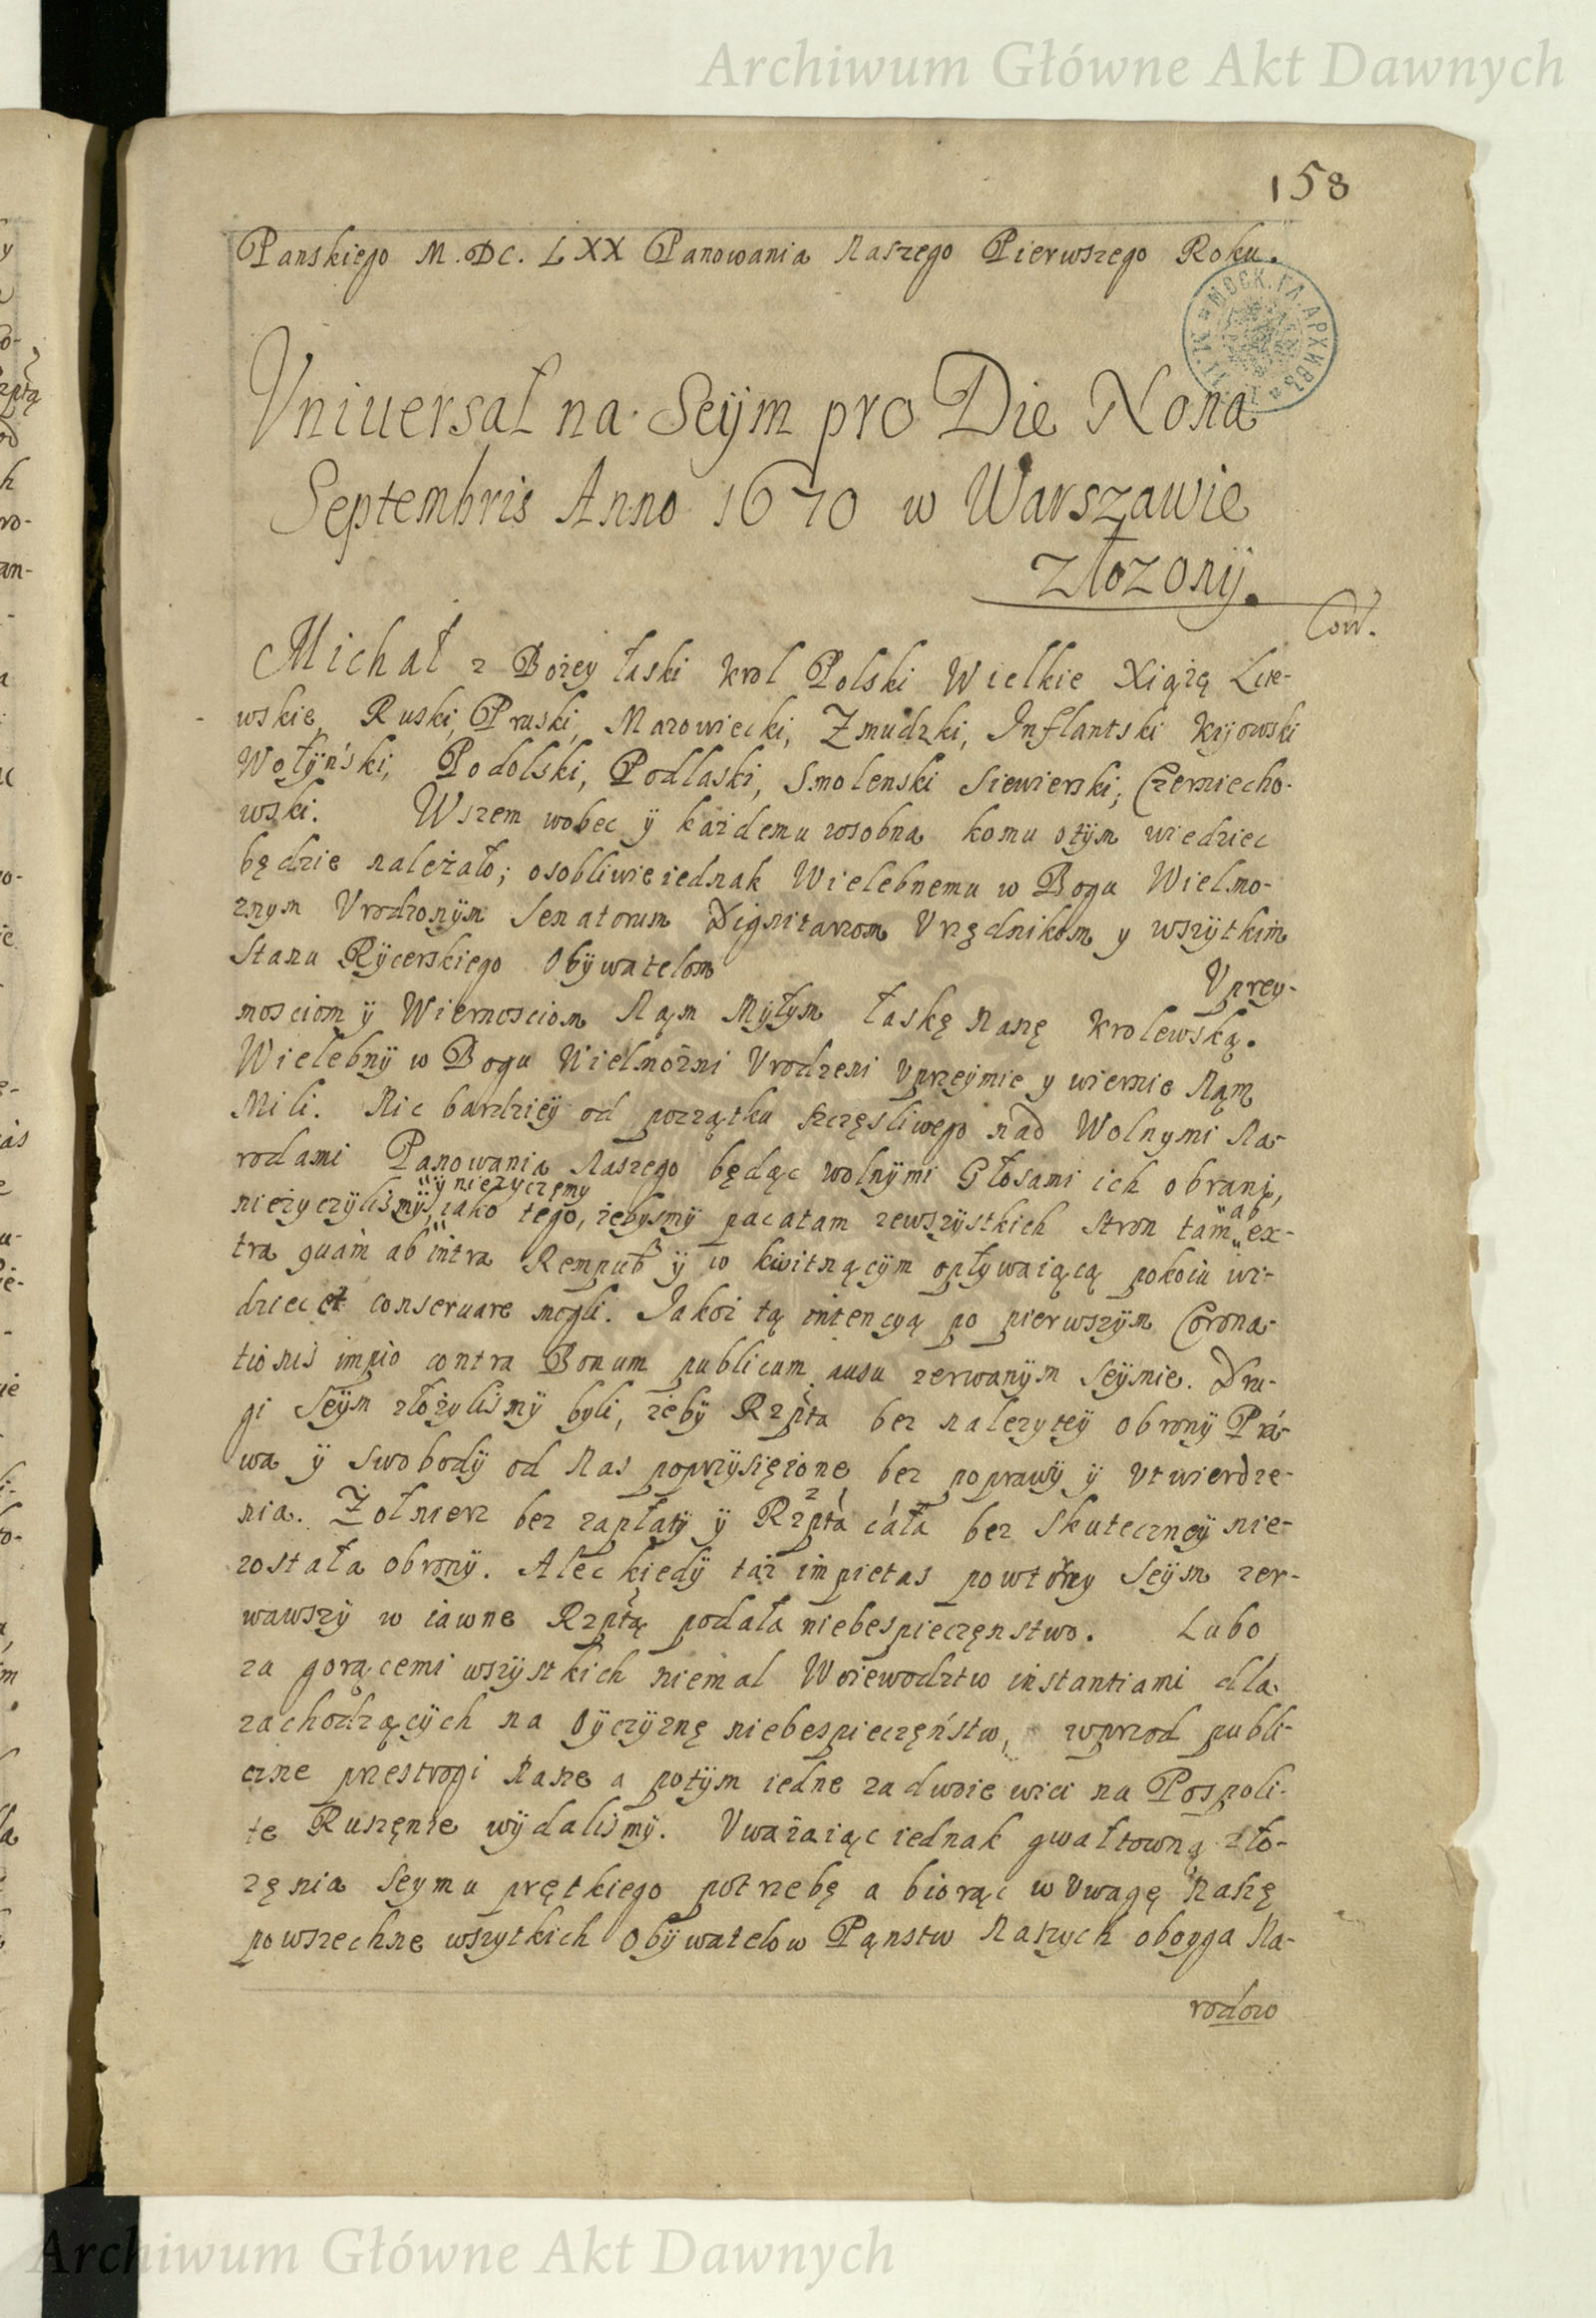 Archiwum Główne Akt Dawnych
158
Panskiego M.DC.LXX Panowania Naszego Pierwszego Roku.
МОСК. ГЛ. АРХИВЪ
Vniuersał na Seÿm pro Die Nona
Septembris Anno 1670 w Warszawie
złozonÿ.
Corr.
Michał z Bożey łaski Krol Polski Wielkie Xiążę Lite-
wskie, Ruski, Pruski, Mazowiecki, Zmudzki, Inflantski Kijowski
Wołÿński, Podolski, Podlaski, Smolenski Siewierski, Czerniecho-
wski. Wszem wobec ÿ każdemu zosobna komu otÿm wiedziec
będzie należało; osobliwie iednak Wielebnemu w Bogu Wielmo-
znym Vrodzonÿm Senatorom Dignitarzom Vrzędnikom y wszÿtkim
Stanu Rÿcerskiego Obÿwatelom Vprzey-
mosciom ÿ Wiernosciom Nąm Mÿłym łaskę Naszę Krolewską.
Wielebnÿ w Bogu Wielmożni Vrodzeni Vprzeÿmie y wiernie Nąm
Mili. Nic bardzieÿ od początku szczęsliwego nad Wolnymi Na-
rodami Panowania Naszego będąc wolnÿmi Głosami ich obrani,
"ÿ nieżyczęmy
nieżyczÿlismÿ, iako tego, żebÿsmÿ pacatam zewszÿstkich stron tam "ab ex-
tra quàm ab intra Rempub ÿ w kwitnącÿm opływaiącą pokoiu wi-
dziec et conseruare mogli. Jakoż tą intencyą po pierwszÿm Corona-
tionis impio contra Bonum publicum ausu zerwanÿm Seÿmie. Dru-
gi Seÿm złożÿlismÿ byli, żebÿ Rzpta bez nalezyteÿ obronÿ Prá-
wa ÿ Swobodÿ od Nas poprzÿsiężone, bez poprawÿ ÿ Vtwierdze-
nia. Żołnierz bez zapłatÿ ÿ Rzpta cáła bez skuteczneÿ nie-
została obronÿ. Alec kiedÿ taż impietas powtorny Seÿm zer-
wawszÿ w iawne Rzptą podała niebespieczęnstwo. Lubo
za gorącemi wszÿstkich niemal Woiewodztw instantiami dla
zachodzącÿch na Oÿczÿznę niebespieczęństw, wprzod publi-
czne przestrogi Nasze a potÿm iedne za dwoie wici na Pospoli-
te Ruszęnie wÿdalismÿ. Vważaiąc iednak gwałtowną zło-
zęnia Seymu prętkiego potrzebę a biorąc w Vwagę Naszę
powszechne wszytkich Obÿwatelow Pąnstw Naszych oboyga Na-
rodow
Archiwum Główne Akt Dawnych